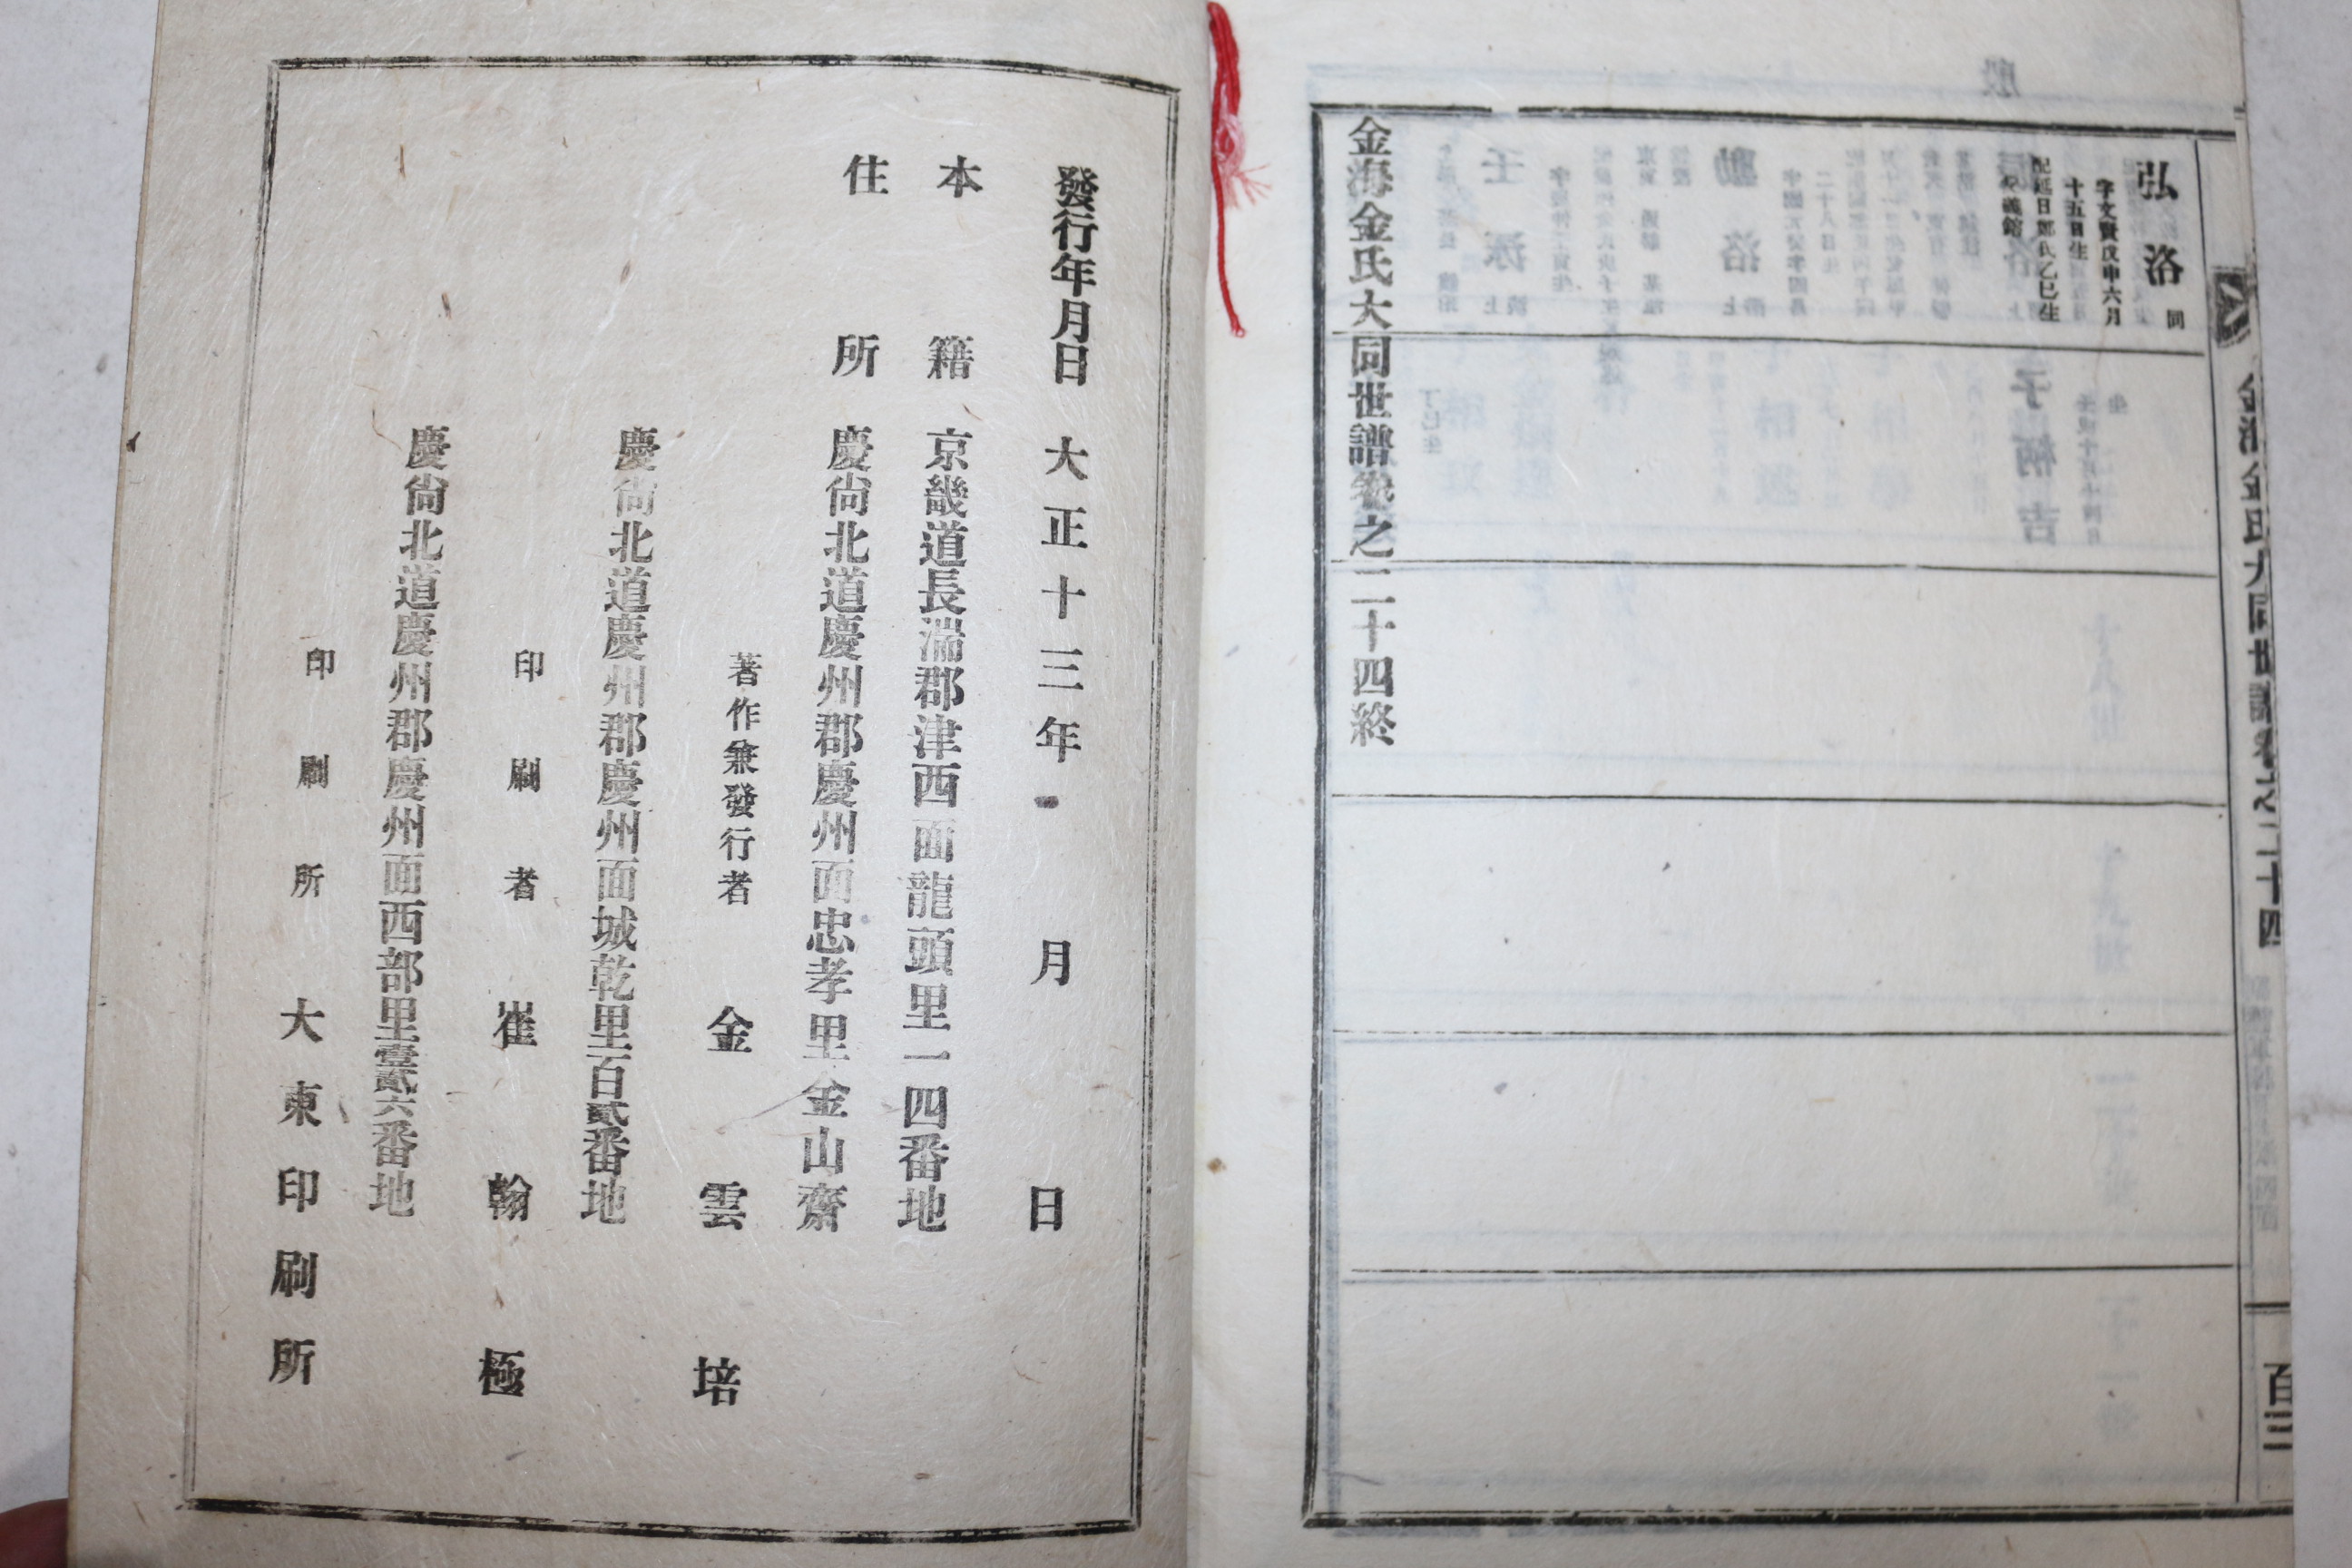 弘洛 同
字文賢戊申六月
十五日生
配延日鄭氏乙巳生
子柄吉
生
丁巳生
金海金氏大同世譜卷之二十四終
金海金氏大同世譜卷之二十四
百三
發行年月日 大正十三年 月 日
本籍 京畿道長湍郡津西面龍頭里一四番地
住所 慶尙北道慶州郡慶州面忠孝里金山齋
著作兼發行者 金雲培
慶尙北道慶州郡慶州面城乾里百貳番地
印刷者 崔翰極
慶尙北道慶州郡慶州面西部里壹貳六番地
印刷所 大東印刷所